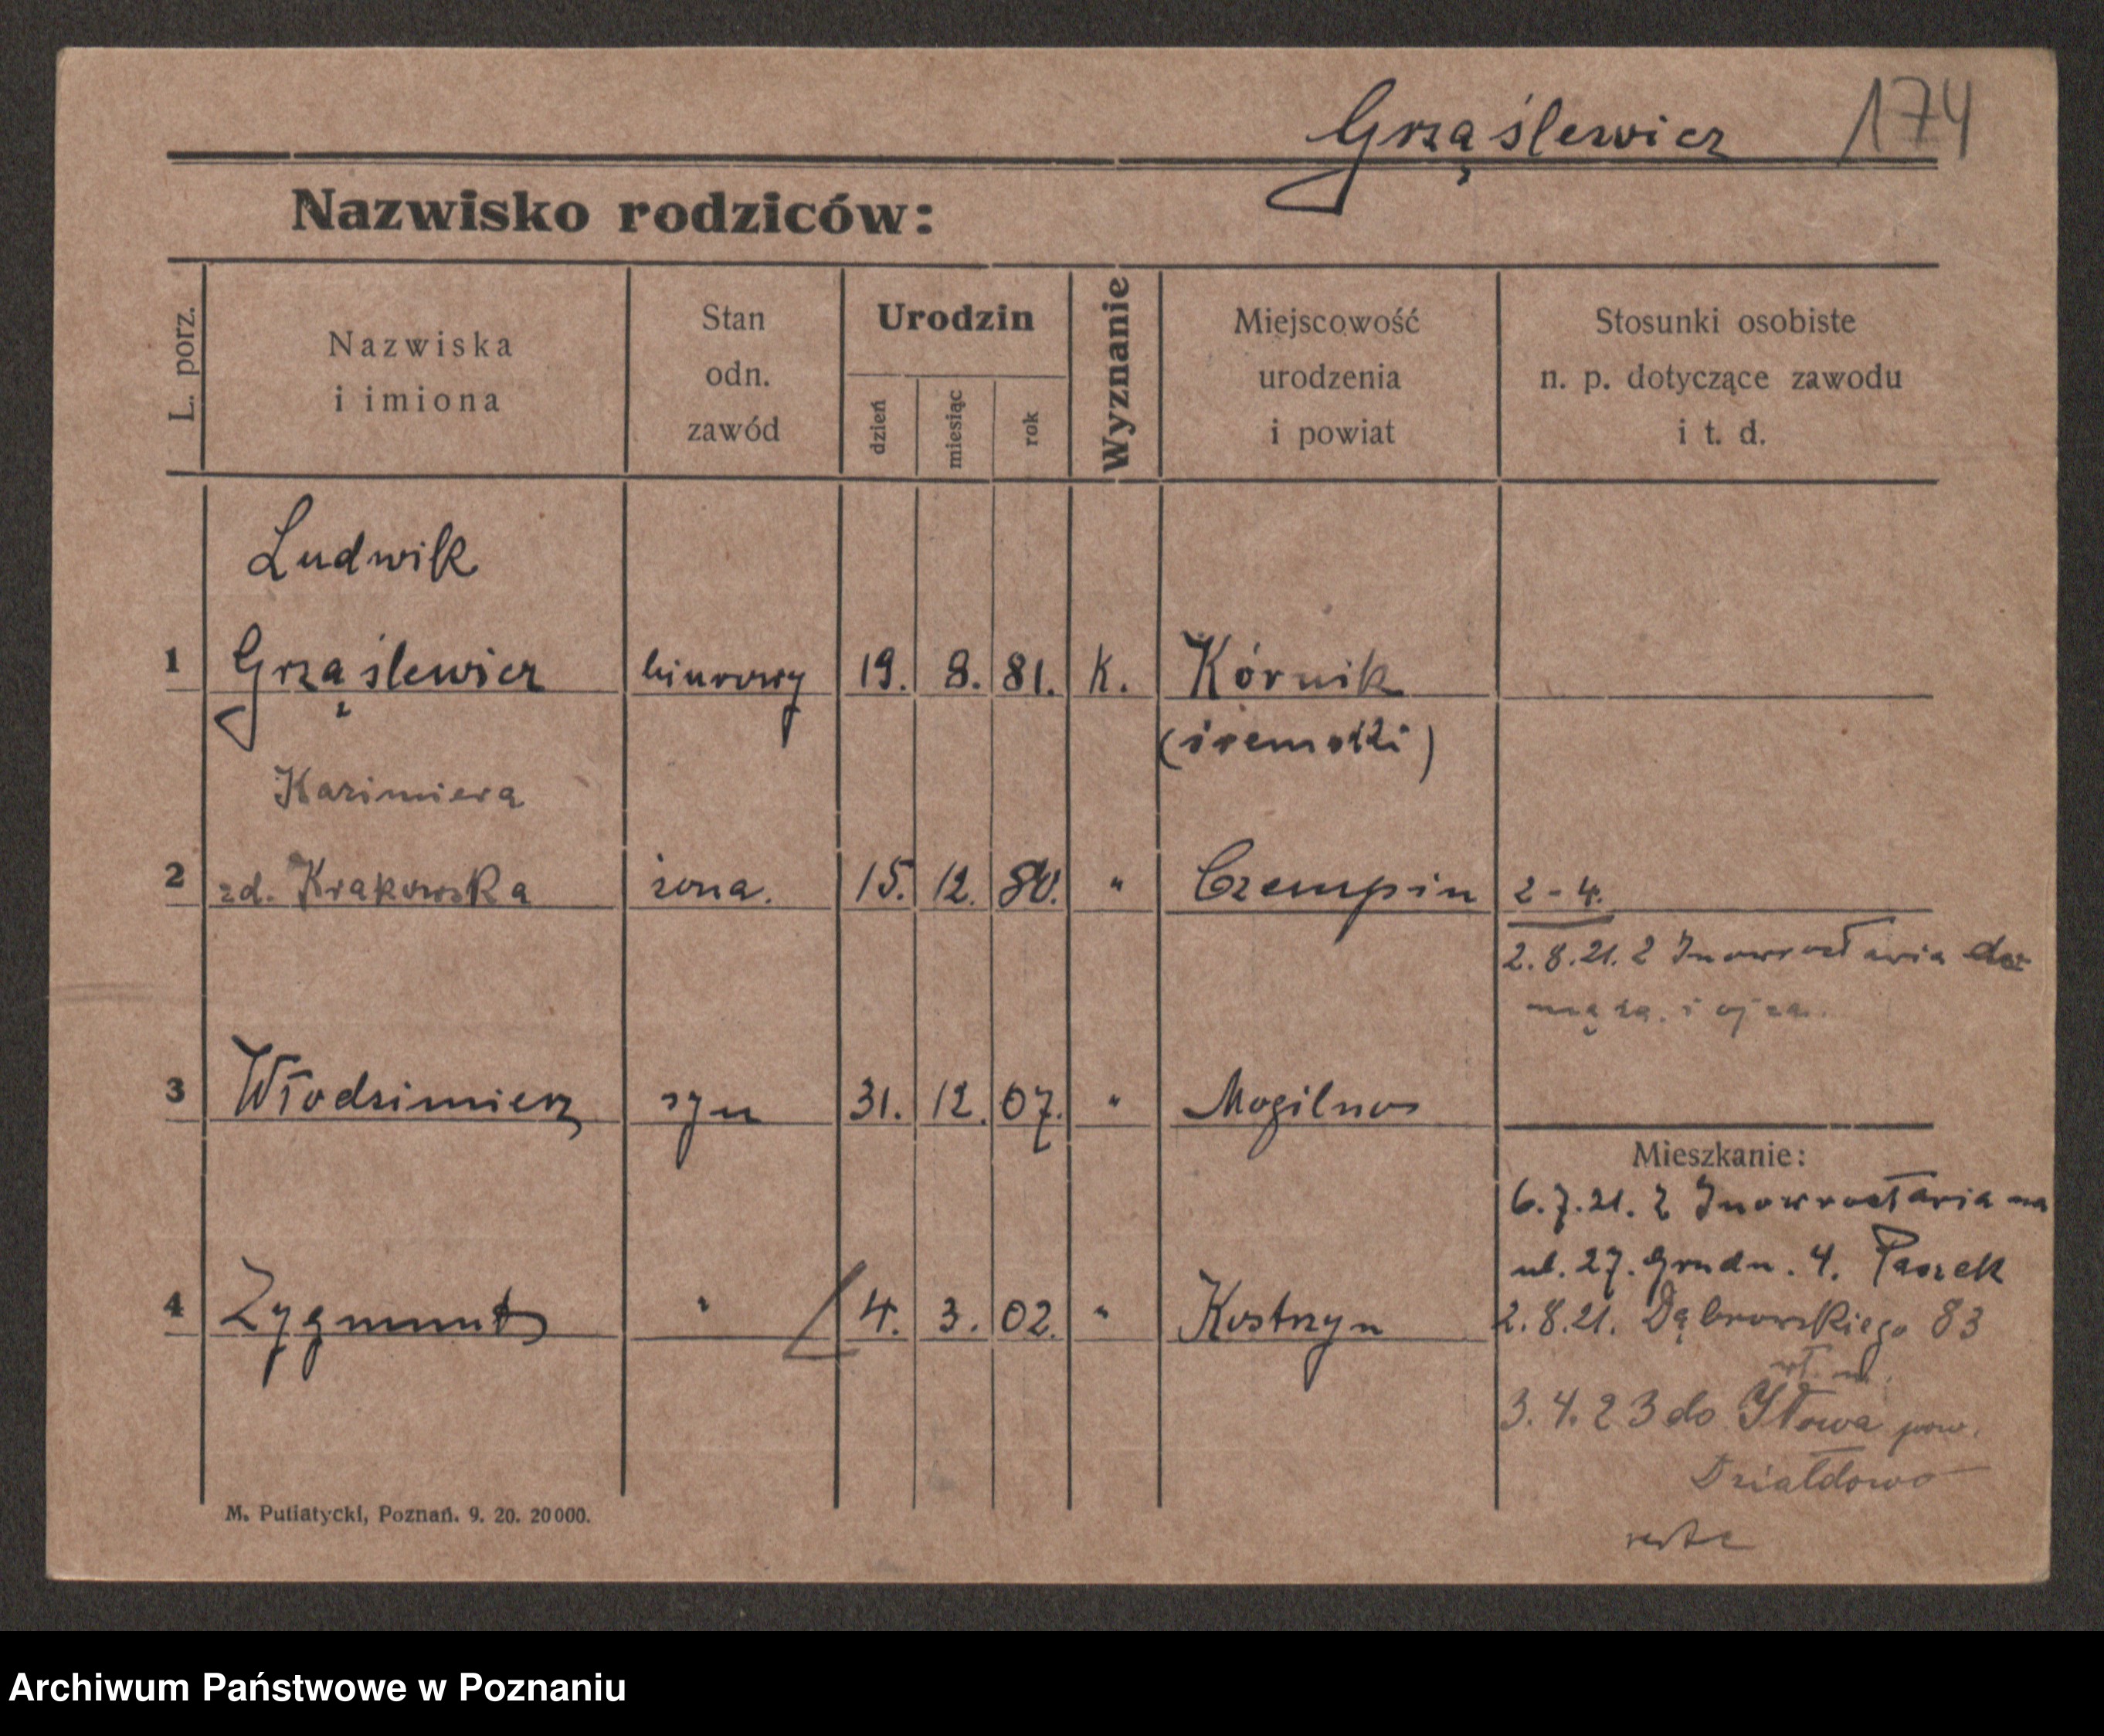 Grząślewicz 174
Nazwisko rodziców:
L. porz.
Nazwiska
i imiona
Stan
odn.
zawód
Urodzin
dzień
miesiąc
rok
Wyznanie
Miejscowość
urodzenia
i powiat
Stosunki osobiste
n. p. dotyczące zawodu
i t. d.
Ludwik
1 Grząślewicz biurowy 19. 8. 81. K. Kórnik
(śremski)
Kazimiera
2 zd. Krakowska żona. 15. 12. 80. " Czempin 2-4.
2.8.21. z Inowrocławia do
męża i ojca.
3 Włodzimierz syn 31. 12. 07. " Mogilno
Mieszkanie:
6.7.21. z Inowrocławia na
ul. 27. Grudn. 4.
4 Zygmunt " 4. 3. 02. " Kostrzyn 2.8.21. Dąbrowskiego 83
wł. m.
3.4.23 do Iłowa pow.
Działdowo
M. Putiatycki, Poznań. 9. 20. 20000.
Archiwum Państwowe w Poznaniu